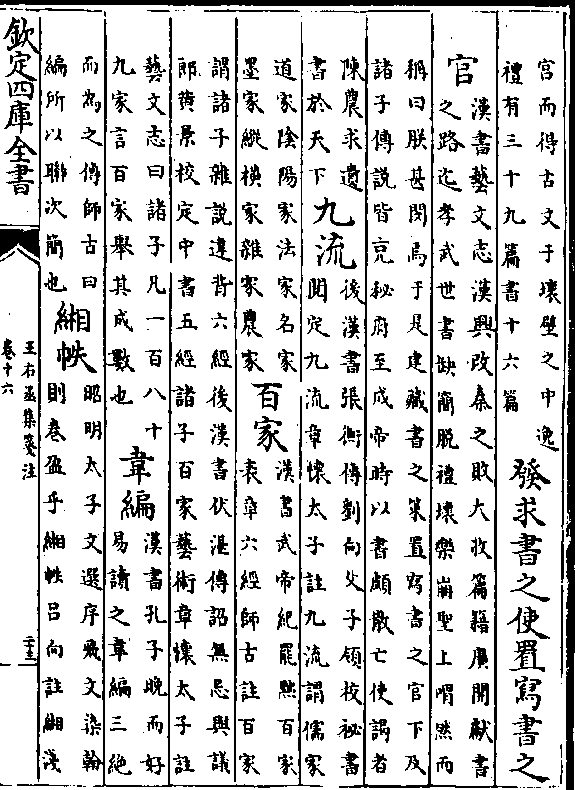 宮而得古文于壞壁之中逸
禮有三十九篇書十六篇
發求書之使置寫書之
官
漢書藝文志漢興改秦之敗大收篇籍廣開獻書
之路迄孝武世書缺簡脫禮壞樂崩聖上喟然而
稱曰朕甚閔焉于是建藏書之策置寫書之官下及
諸子傳說皆充秘府至成帝時以書頗散亡使謁者
陳農求遺
書於天下
九流
後漢書張衡傳劉向父子領校祕書
閱定九流章懷太子註九流謂儒家
道家陰陽家法家名家
墨家縱横家雜家農家
百家
漢書武帝紀罷黜百家
表章六經師古註百家
謂諸子雜說違背六經後漢書伏湛傳詔無忌與議
郎黄景校定中書五經諸子百家藝術章懷太子註
藝文志曰諸子凡一百八十
九家言百家舉其成數也
韋編
漢書孔子晚而好
易讀之韋編三絶
而為之傳師古曰
編所以聯次簡也
緗帙
昭明太子文選序飛文染翰
則卷盈乎緗帙吕向註緗淺
欽定四庫全書
王右丞集箋注
卷十六
二十三